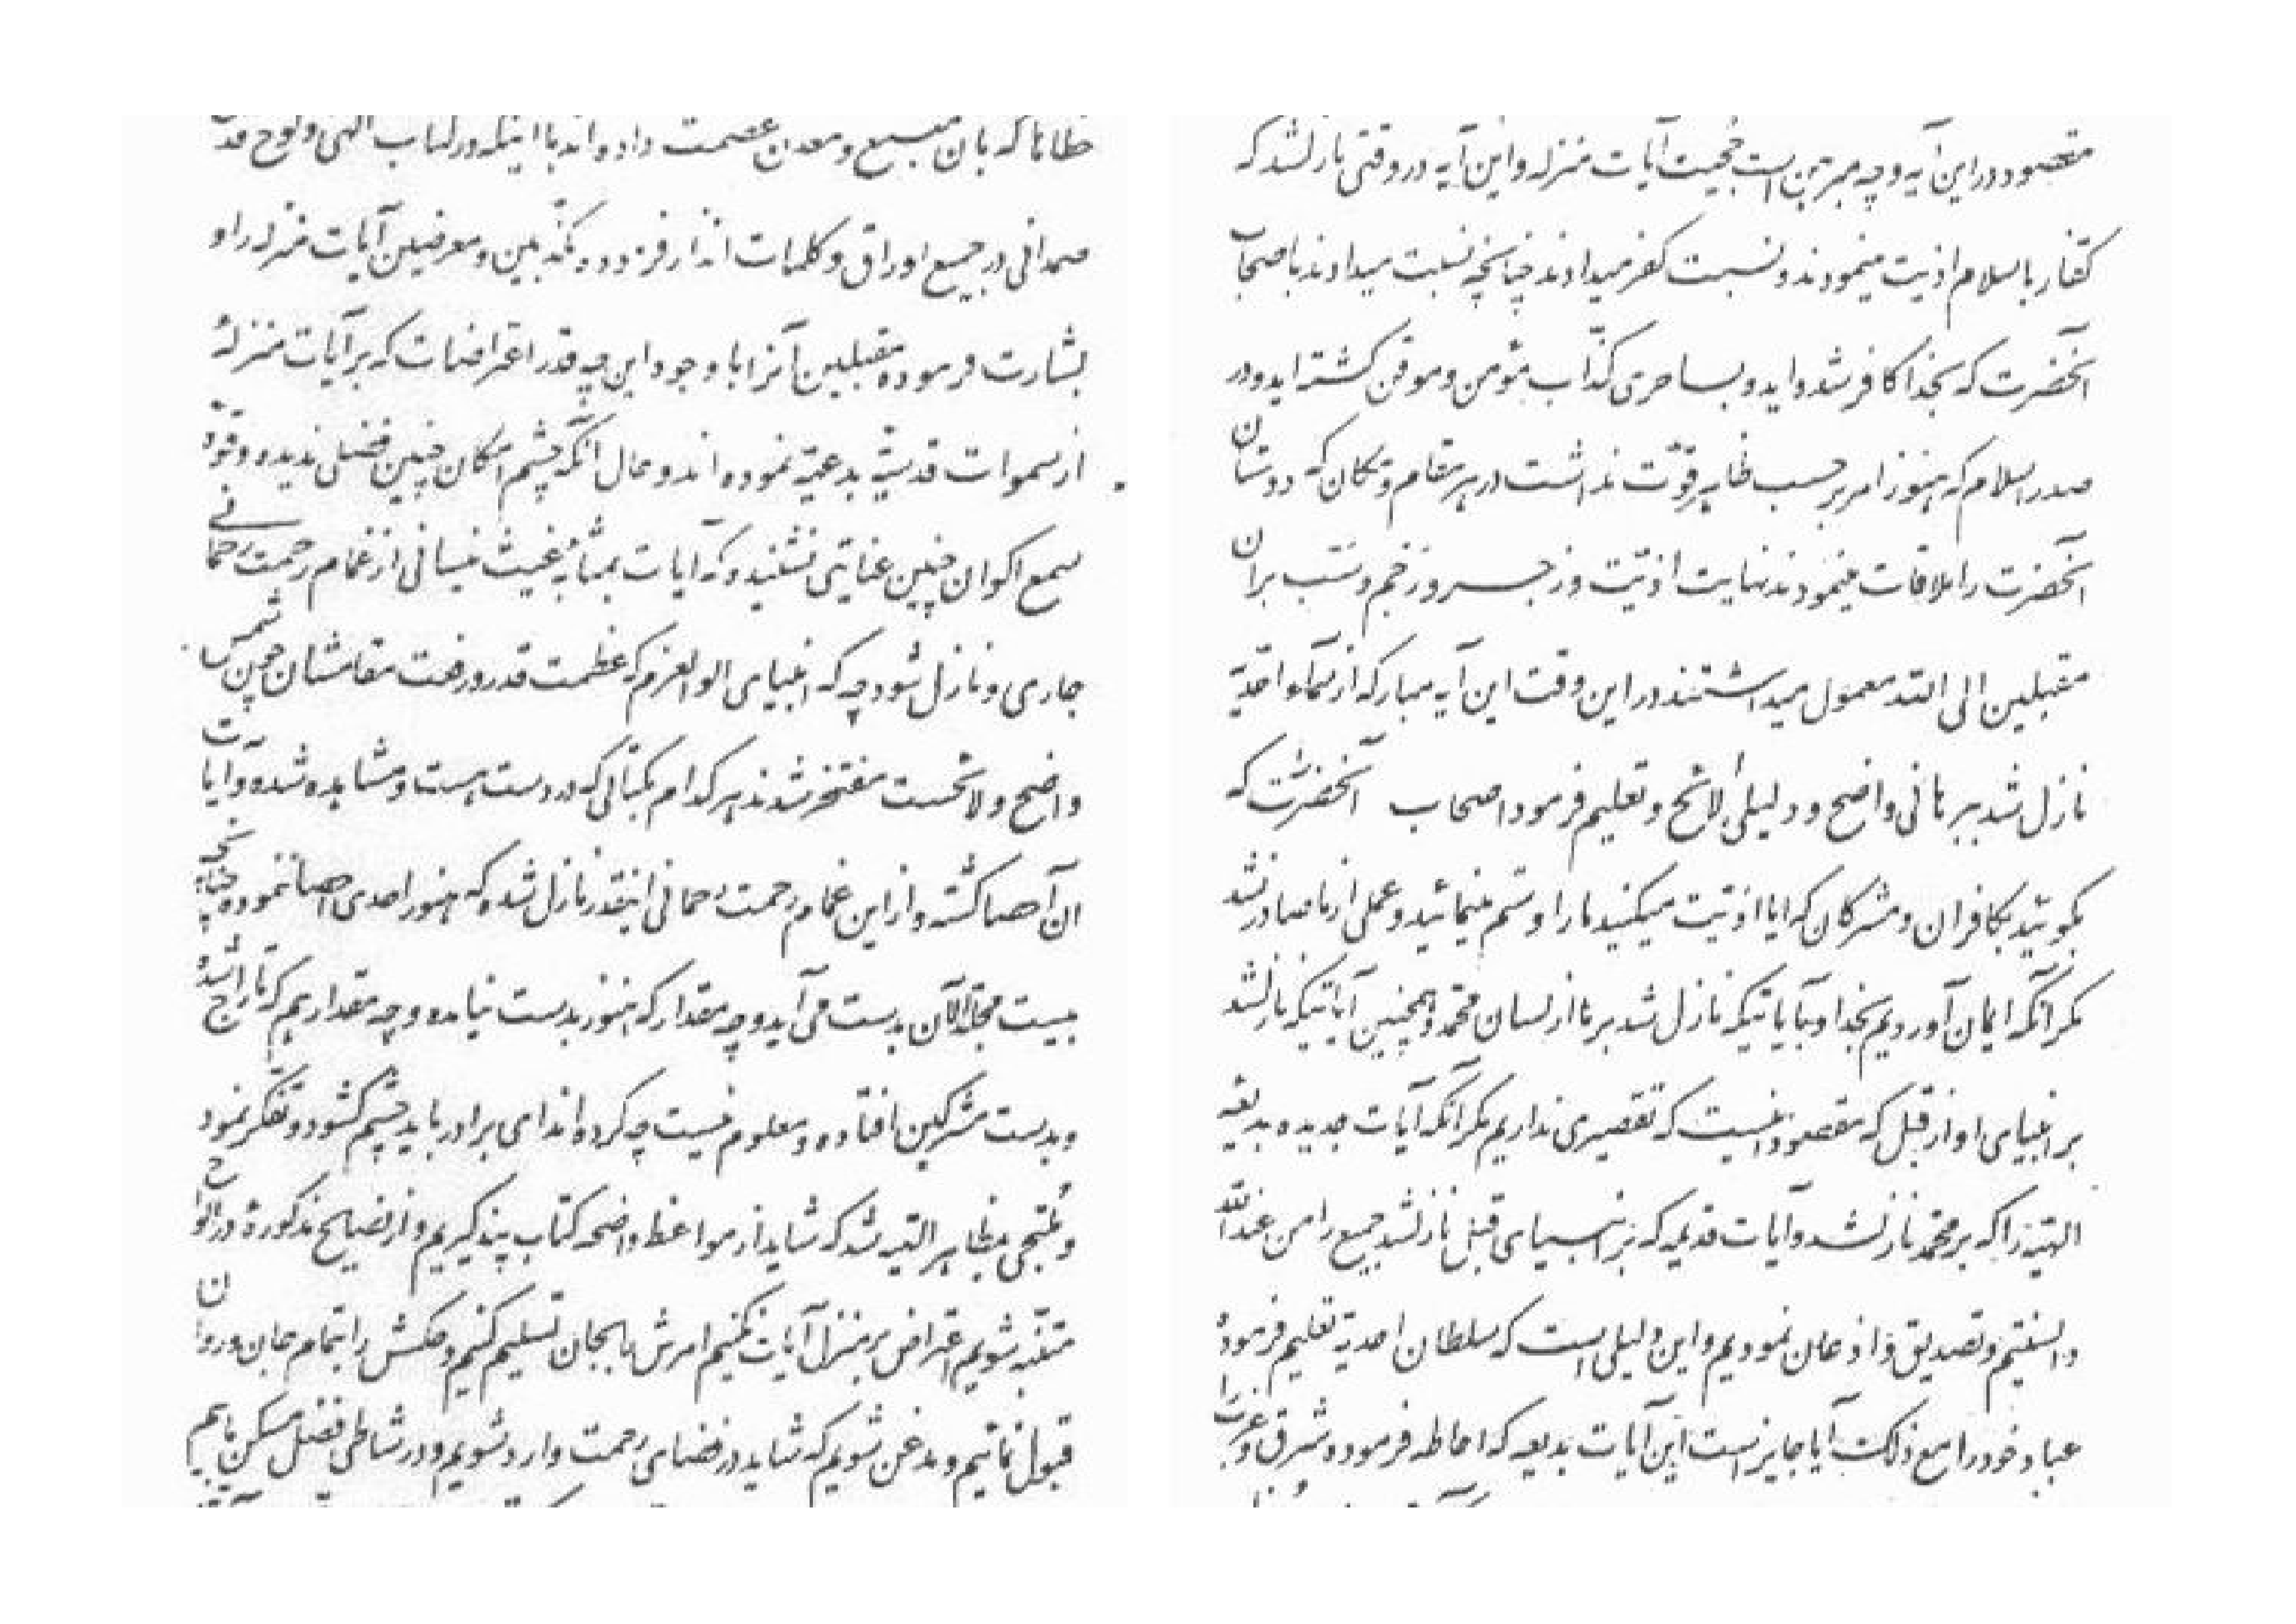 مقصود در این آیه و چه مبرهن است حجیت آیات منزله و این آیه در وقتی نازلشد که
کفار باسلام اذیت مینمودند و نسبت کفر میدادند چنانچه نسبت میدادند باصحاب
آنحضرت که بخدا کافر شده‌اید و بساحری کذّاب مؤمن و موقن گشته‌اید و در
صدر اسلام که هنوز امر بر حسب ظاهر قوّت نداشت در هر مقام و مکان که دوستان
آنحضرت را ملاقات مینمودند نهایت اذیّت و زجر و زخم و سبّ بر ان
مقبلین الی الله معمول میداشتند در این وقت این آیه مبارکه از سماء احدّیه
نازل شد ببرهانی واضح و دلیلی لائح و تعلیم فرمود اصحاب آنحضرت که
بگوئید بکافران و مشرکان که ایا اذیّت میکنید مارا و ستم مینمائید و عملی از ما صادر نشد
مگر آنکه ایمان آوردیم بخدا و بآیاتیکه نازل شد بر ما از لسان محمّد و همچنین آیاتیکه نازلشد
بر انبیای او از قبل که مقصود اینست که تقصیری نداریم مگر آنکه آیات جدیده بدیعهٔ
الهیّه را که بر محمّد نازلشد و آیات قدیمه که بر انبیای قبل نازلشد جمیع را من عند الله
دانستیم و تصدیق و اذعان نمودیم و این دلیلی است که سلطان احدیه تعلیم فرموده
عباد خود را مع ذلک آیا جایز است این آیات بدیعه که احاطه فرموده شرق و غرب را
خطا نما که بان منبع و معدن عصمت داده‌اند با اینکه در کتاب الهی و لوح قدس
صمدانی در جمیع اوراق و کلمات انذار فرموده مکذّبین و معرضین آیات منزله را و
بشارت فرموده مقبلین آنرا با وجود این چه قدر اعتراضات که بر آیات منزلهٔ
از سموات قدسیّه بدعیّه نموده‌اند و حال آنکه چشم امکان چنین فضلی ندیده و قوّهٔ
سمع اکوان چنین عنایتی نشنیده که آیات بمثابهٔ غیث نیسانی از غمام رحمت رحمانی
جاری و نازل شود چه که انبیای اولو العزم که عظمت قدر و رفعت مقامشان چون شمس
واضح و لائحست مفتخر شدند هر کدام بکتابی که در دست هست و مشاهده شده و آیات
ان آحصا گشته و از این غمام رحمت رحمانی اینقدر نازل شده که هنوز احدی احصا ننموده چنانچه
بیست مجلّد الآن بدست می‌آید و چه مقدار که هنوز بدست نیامده و چه مقدار هم که تاراج شده
و بدست مشرکین افتاده و معلوم نیست چه کرده‌اند ای برادر باید چشم گشود و تفکّر نمود
و ملتجی بمظاهر الهیّه شد که شاید از مواعظ واضحه کتاب پند گیریم و از نصایح مذکورهٔ در الواح
متنبّه شویم اعتراض بر منزل آیات نکنیم امرش را بجان تسلیم کنیم و حکمش را بتمام جان و روان
قبول نمائیم و مذعن شویم که شاید در فضای رحمت وارد شویم و در شاطی فضل مسکن نمائیم